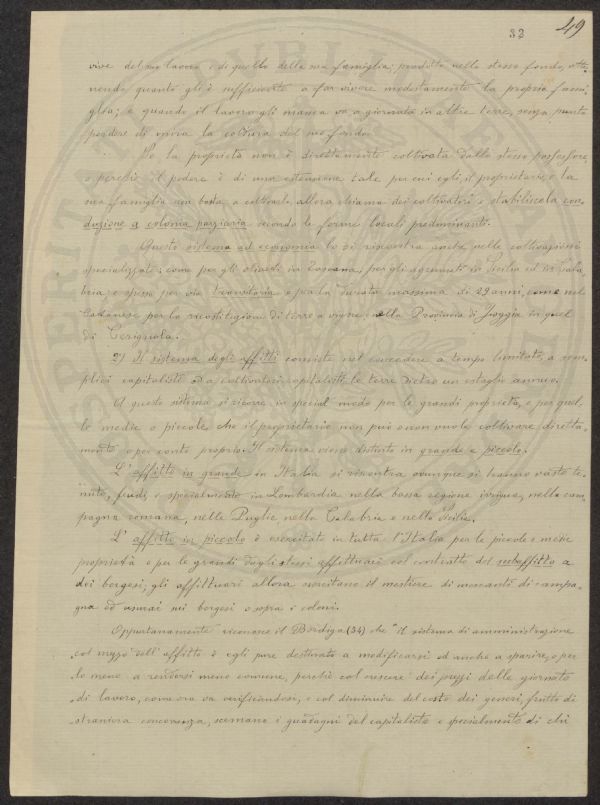 32 49
vive del suo lavoro e di quello della sua famiglia; prodotto nello stesso fondo, otte-
nendo quanto gli è sufficiente a far vivere modestamente la propria fami-
glia; e quando il lavoro gli manca va a giornata in altre terre, senza punto
perdere di mira la coltura del suo fondo.
Se la proprietà non è direttamente coltivata dallo stesso possessore,
o perchè il podere è di una estensione tale per cui egli, il proprietario, e la
sua famiglia non basta a coltivarlo, allora chiama dei coltivatori e stabilisce la con-
duzione a colonia parziaria secondo le forme locali predominanti.
Questo sistema ad economia lo si riscontra anche nelle coltivazioni
specializzate; come per gli oliveti in Toscana, per gli agrumeti in Sicilia ed in Cala-
bria; e spesso per via transitoria e per la durata massima di 29 anni, come nel
Catanese per la ricostituzione di terre a vigne; nella Provincia di Foggia in quel
di Cerignola.
2) Il sistema degli affitti consiste nel concedere a tempo limitato, a sem-
plici capitalisti od a coltivatori capitalisti, le terre dietro un estaglio annuo.
A questo sistema si ricorre in special modo per le grandi proprietà, e per quel-
le medie o piccole che il proprietario non può o non vuole coltivare diretta-
mente o per conto proprio. Il sistema viene distinto in grande e piccolo.
L'affitto in grande in Italia si riscontra ovunque si hanno vaste te-
nute, feudi, e specialmente in Lombardia nella bassa regione irrigua, nella cam-
pagna romana, nelle Puglie nella Calabria e nella Sicilia.
L'affitto in piccolo è esercitato in tutta l'Italia per le piccole e medie
proprietà e per le grandi dagli stessi affittuari col contratto del subaffitto a
dei borgesi; gli affittuari allora esercitano il mestiere di mercanti di campa-
gna ed usurai sui borgesi o sopra i coloni.
Opportunamente riconosce il Bordiga (34) che "il sistema di amministrazione
col mezzo dell'affitto è egli pure destinato a modificarsi ed anche a sparire, o per
lo meno a rendersi meno comune, perchè col crescere dei prezzi delle giornate
di lavoro, come ora va verificandosi, e col diminuire del costo dei generi, frutto di
straniera concorrenza, scemano i guadagni del capitalista e specialmente di chi